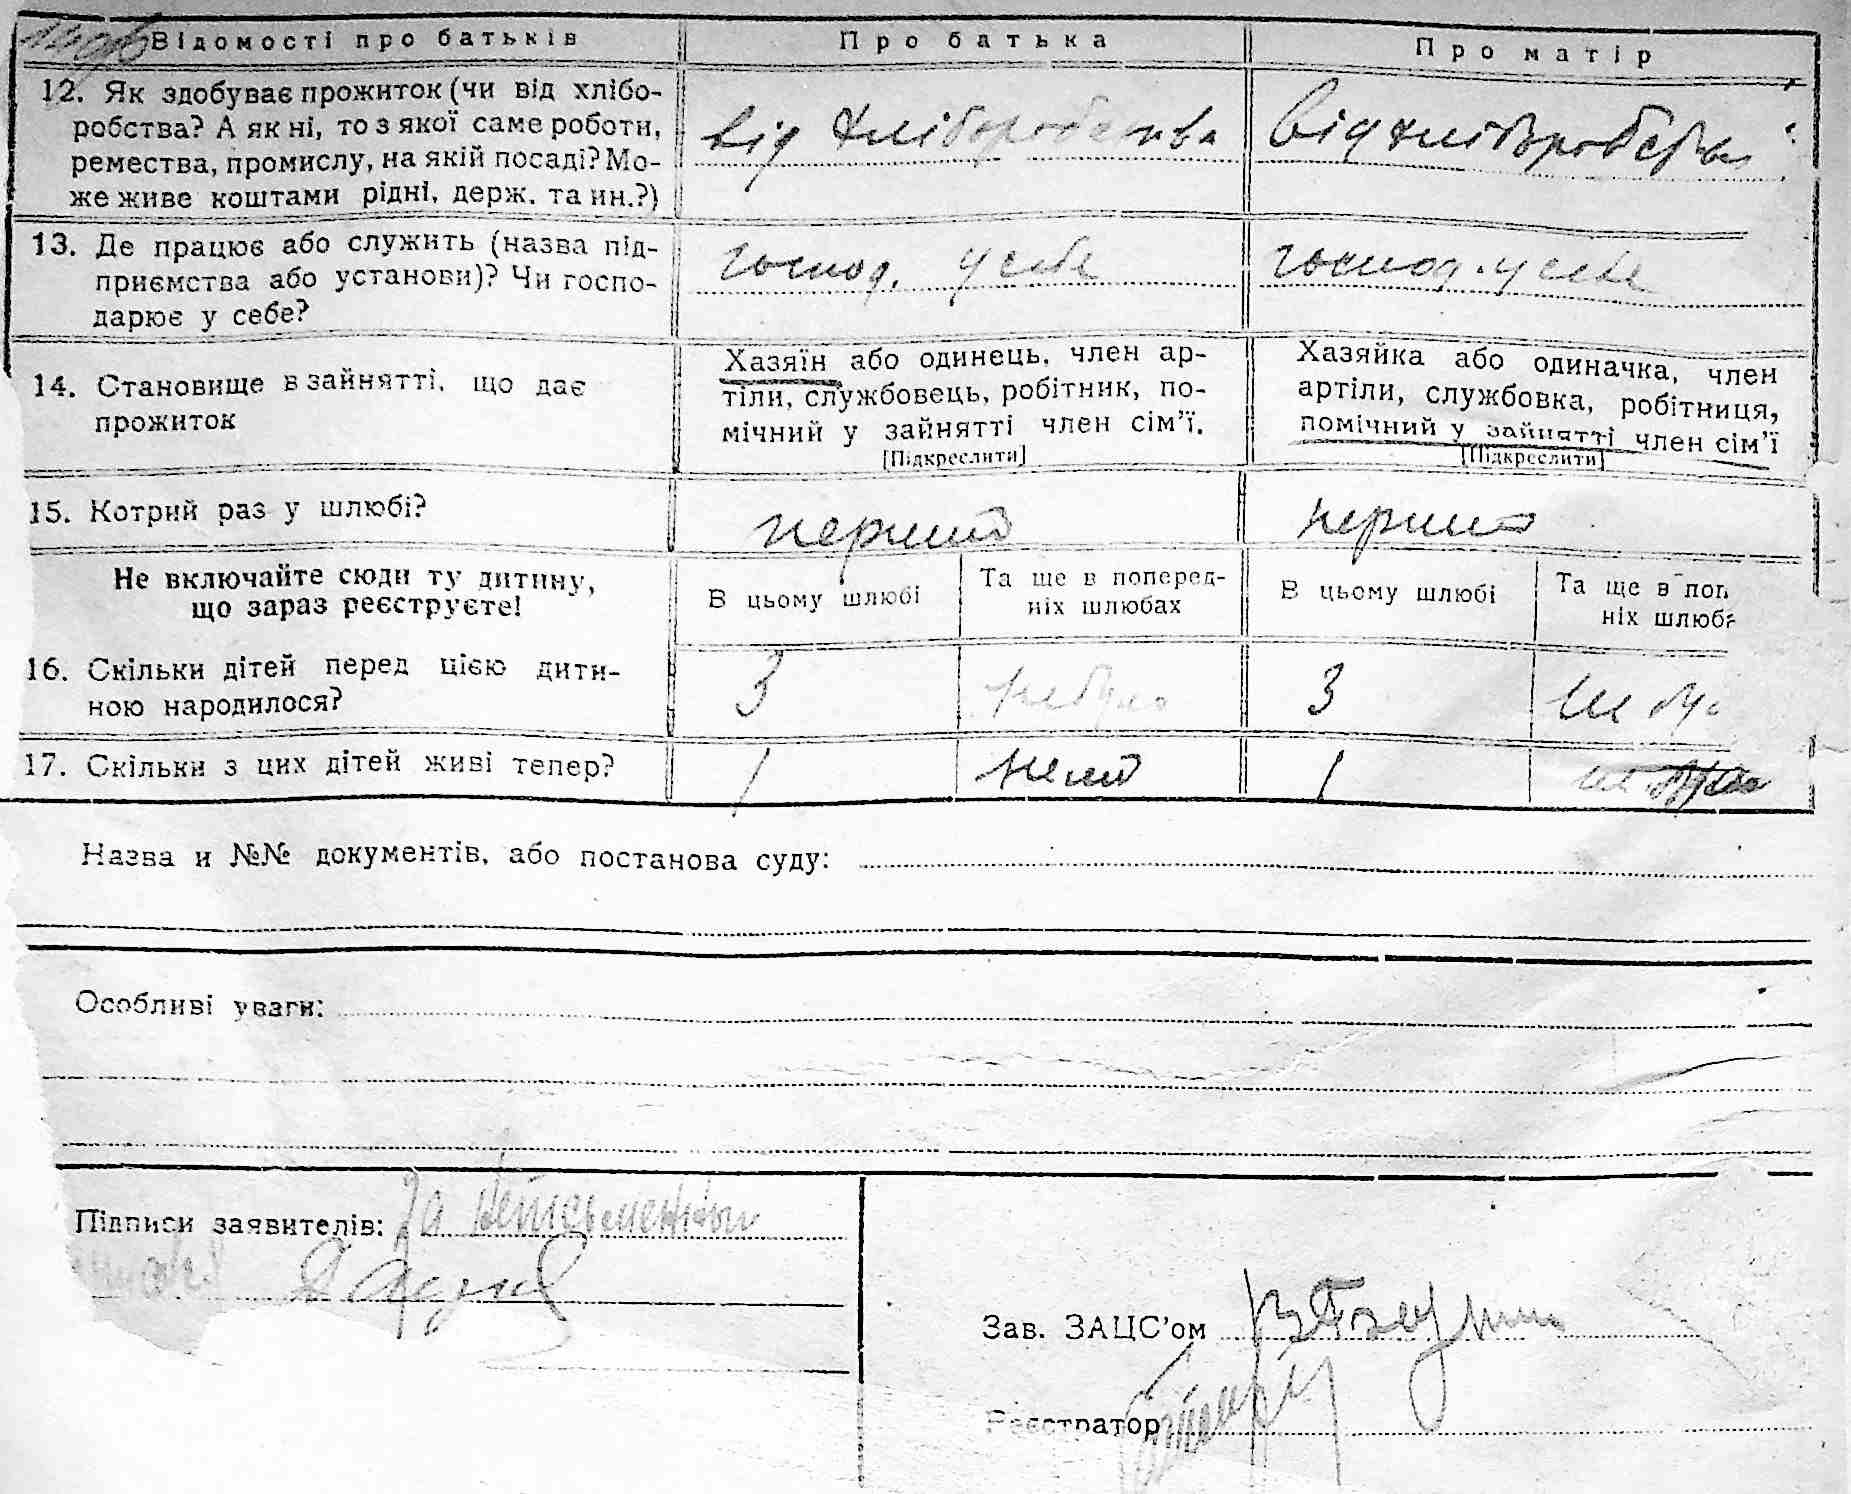 Відомості про батьків
Про батька
Про матір
12. Як здобуває прожиток (чи від хлібо-
робства? А як ні, то з якої саме роботи,
ремества, промислу, на якій посаді? Мо-
же живе коштами рідні, держ. та ин.?)
від хліборобства
від хліборобства
13. Де працює або служить (назва під-
приємства або установи)? Чи госпо-
дарює у себе?
господ. у себе
господ. у себе
14. Становище в зайнятті, що дає
прожиток
Хазяїн або одинець, член ар-
тіли, службовець, робітник, по-
мічний у зайнятті член сім’ї.
[Підкреслити]
Хазяйка або одиначка, член
артіли, службовка, робітниця,
помічний у зайнятті член сім’ї
[Підкреслити]
15. Котрий раз у шлюбі?
перший
перший
Не включайте сюди ту дитину,
що зараз реєструєте!
В цьому шлюбі
Та ще в поперед-
ніх шлюбах
В цьому шлюбі
Та ще в поп
ніх шлюба
16. Скільки дітей перед цією дити-
ною народилося?
3
не було
3
не бу
17. Скільки з цих дітей живі тепер?
1
1
Назва и №№ документів, або постанова суду:
Особливі уваги:
Підписи заявителів: За
Зав. ЗАЦС’ом
Реєстратор